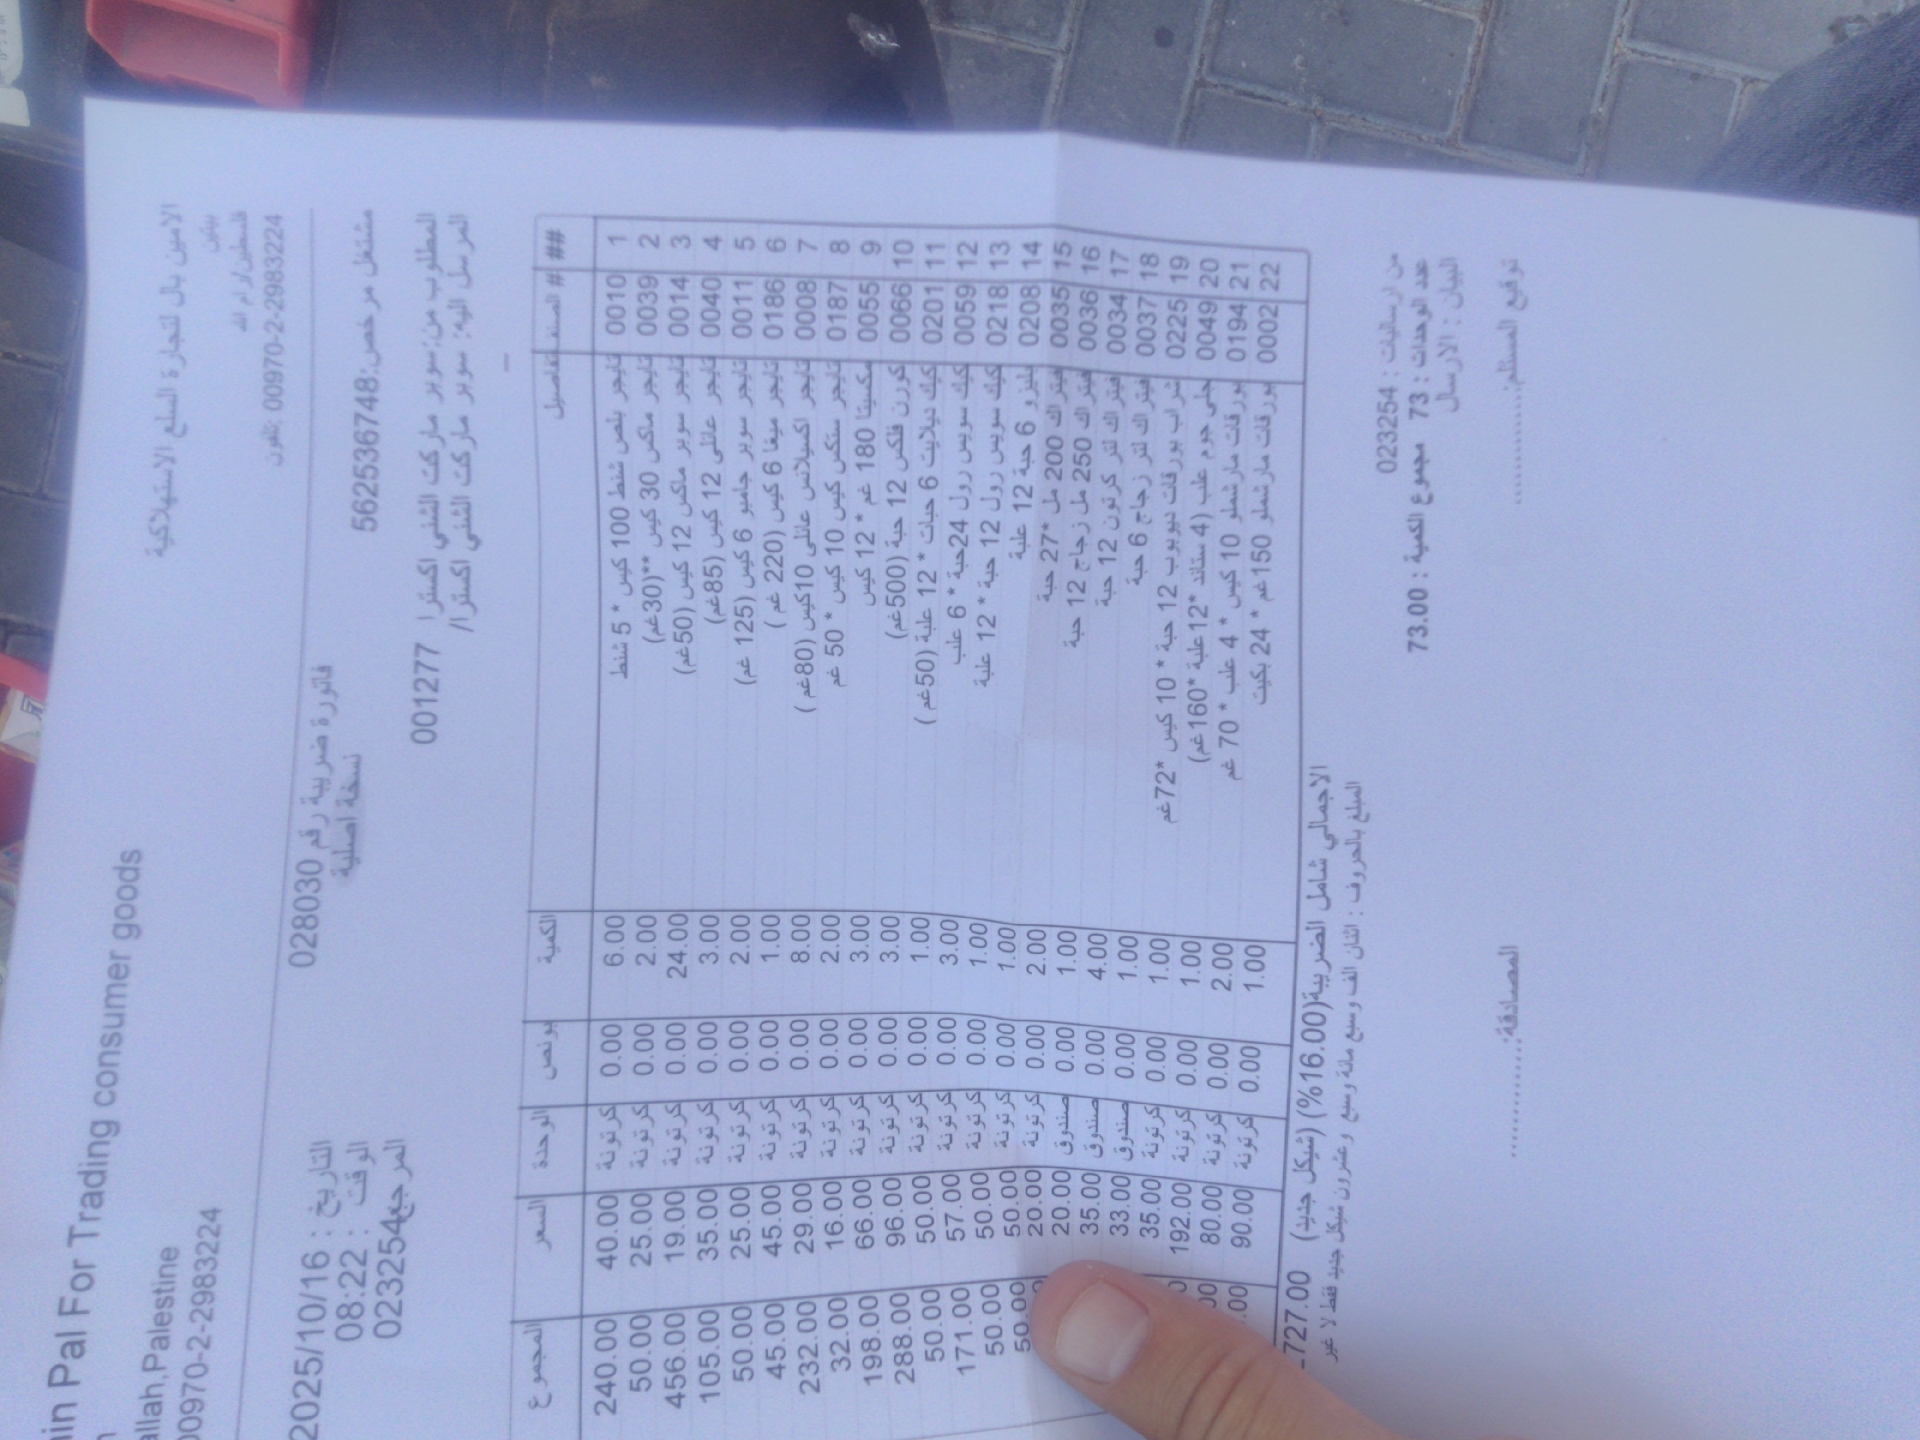 الامين بال لتجارة السلع الاستهلاكية
in Pal For Trading consumer goods
فلسطين/رام الله
allah,Palestine
تلفون: 00970-2-2983224
00970-2-2983224
فاتورة ضريبة رقم 028030
نسخة اصلية
مشتغل مرخص: 562536748
التاريخ : 2025/10/16
الوقت : 08:22
المرجع 023254
المطلوب من: سوبر ماركت الشني اكسترا 001277
المرسل اليه: سوبر ماركت الشني اكسترا/
## الصنف# تفاصيل الكمية بونص الوحدة السعر المجموع
1 0010 تايجر بلص شنط 100 كيس * 5 شنط 6.00 0.00 كرتونة 40.00 240.00
2 0039 تايجر ماكس 30 كيس **(30غم) 2.00 0.00 كرتونة 25.00 50.00
3 0014 تايجر سوبر ماكس 12 كيس (50غم) 24.00 0.00 كرتونة 19.00 456.00
4 0040 تايجر عائلي 12 كيس (85غم) 3.00 0.00 كرتونة 35.00 105.00
5 0011 تايجر سوبر جامبو 6 كيس (125 غم) 2.00 0.00 كرتونة 25.00 50.00
6 0186 تايجر ميغا 6 كيس (220 غم ) 1.00 0.00 كرتونة 45.00 45.00
7 0008 تايجر اكسيلانس عائلي 10كيس (80غم ) 8.00 0.00 كرتونة 29.00 232.00
8 0187 تايجر ستكس كيس 10 كيس * 50 غم 2.00 0.00 كرتونة 16.00 32.00
9 0055 مكسيتا 180 غم * 12 كيس 3.00 0.00 كرتونة 66.00 198.00
10 0066 كورن فلكس 12 حبة (500غم) 3.00 0.00 كرتونة 96.00 288.00
11 0201 كيك ديلايت 6 حبات * 12 علبة (50غم ) 1.00 0.00 كرتونة 50.00 50.00
12 0059 كيك سويس رول 24حبة * 6 علب 3.00 0.00 كرتونة 57.00 171.00
13 0218 كيك سويس رول 12 حبة * 12 علبة 1.00 0.00 كرتونة 50.00 50.00
14 0208 6 حبة 12 علبة 1.00 0.00 كرتونة 50.00 50.00
15 0035 فيتراك 200 مل *27 حبة 2.00 0.00 كرتونة 20.00
16 0036 فيتراك 250 مل زجاج 12 حبة 1.00 0.00 صندوق 20.00
17 0034 فيتراك لتر كرتون 12 حبة 4.00 0.00 صندوق 35.00
18 0037 فيتراك لتر زجاج 6 حبة 1.00 0.00 صندوق 33.00
19 0225 شراب بورقات ديوبوب 12 حبة * 10 كيس *72غم 1.00 0.00 كرتونة 35.00
20 0049 جلي جوم علب (4 ستاند *12علبة *160غم) 1.00 0.00 كرتونة 192.00
21 0194 بورقات مارشملو 10 كيس * 4 علب * 70 غم 2.00 0.00 كرتونة 80.00
22 0002 بورقات مارشملو 150غم * 24 بكيت 1.00 0.00 كرتونة 90.00
الاجمالي شامل الضريبة(16.00%) (شيكل جديد) 727.00
المبلغ بالحروف : اثنان الف وسبع مئة وسبع وعشرون شيكل جديد فقط لا غير
من ارساليات : 023254
عدد الوحدات : 73 مجموع الكمية : 73.00
البيان : الارسال
توقيع المستلم:............
المصادقة:............